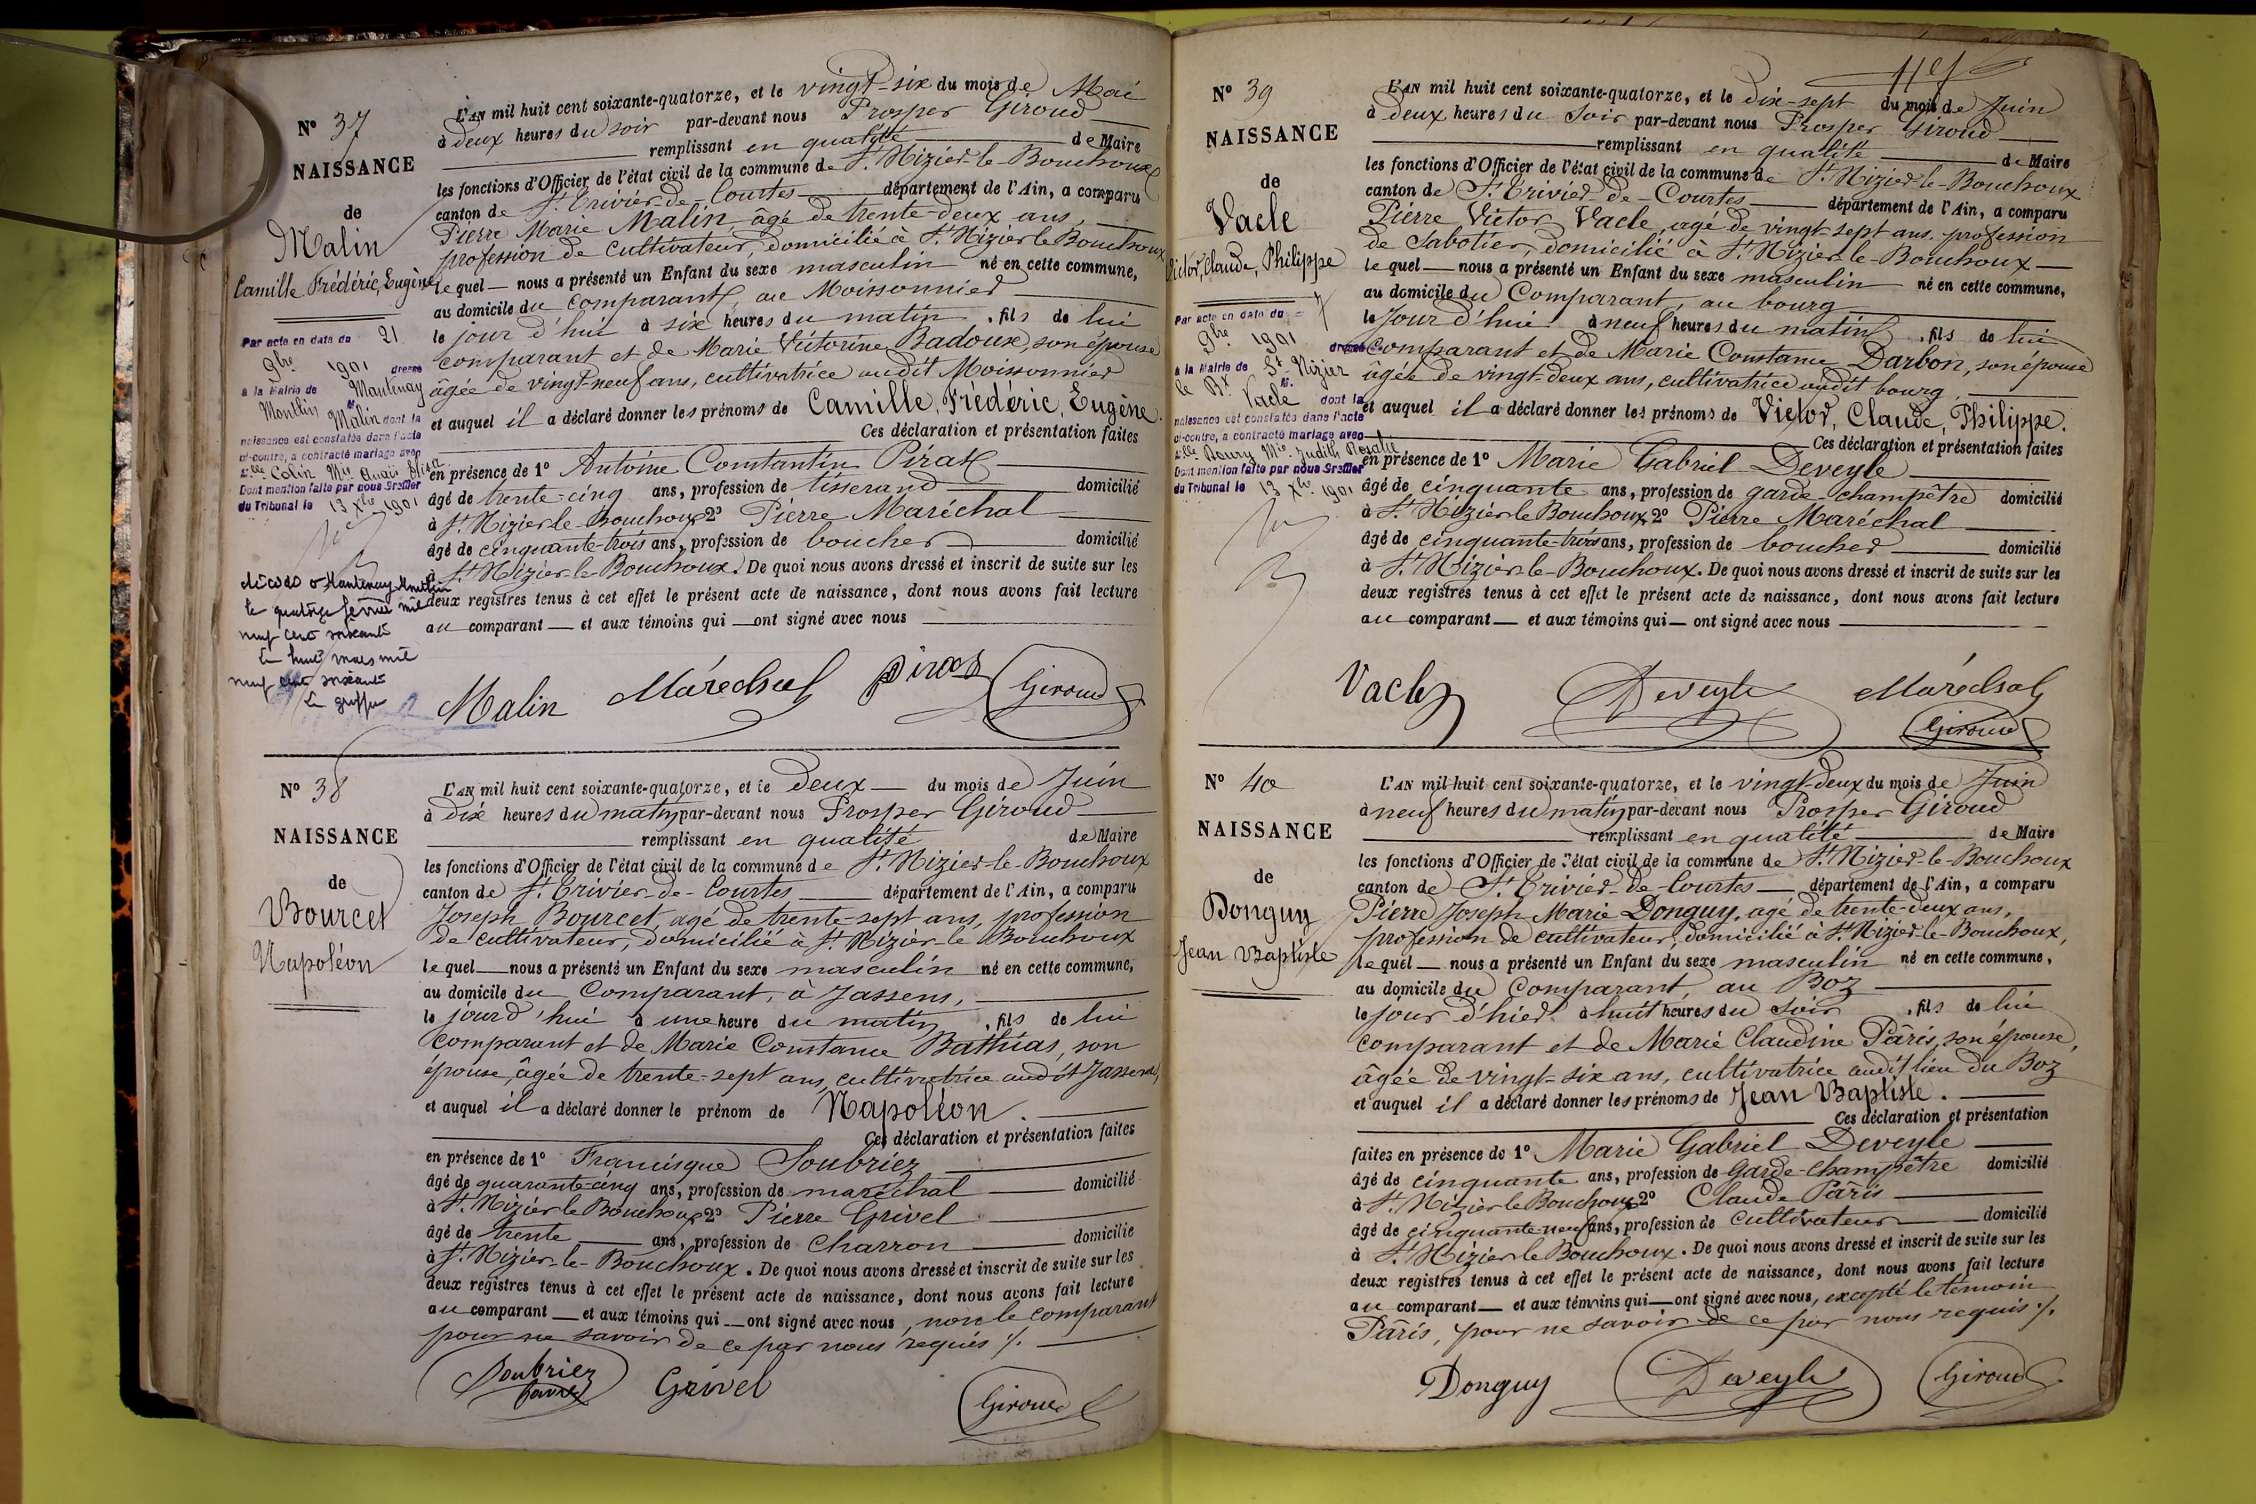 N° 37
NAISSANCE
de
Malin
Camille Frédéric, Eugène
Par acte en date du 21
9bre 1901 dressé
à la Mairie de Mantenay
Montlin M.
Malin dont la
naissance est constatée dans l'acte
ci-contre, a contracté mariage avec
Elle Colin Mie Anaïs Elisa
Dont mention faite par nous Greffier
du Tribunal le 13 Xbre 1901
décédé à Mantenay Montlin
le quatorze février mil
neuf cent soixante
le huit mars mil
neuf cent soixante
Le greffier
L'AN mil huit cent soixante-quatorze, et le vingt-six du mois de Mai
à deux heures du soir par-devant nous Prosper Giroud
remplissant en qualité de Maire
les fonctions d'Officier de l'état civil de la commune de St Nizier-le-Bouchoux
canton de St Trivier-de-Courtes département de l'Ain, a comparu
Pierre Marie Malin âgé de trente-deux ans,
profession de cultivateur, domicilié à St Nizier le Bouchoux
lequel nous a présenté un Enfant du sexe masculin né en cette commune,
au domicile du comparant, au Moissonnier
le jour d'hui à six heures du matin, fils de lui
comparant et de Marie Victorine Badoux, son épouse
âgée de vingt-neuf ans, cultivatrice audit Moissonnier
et auquel il a déclaré donner les prénoms de Camille, Frédéric, Eugène.
Ces déclaration et présentation faites
en présence de 1° Antoine Constantin Pirat
âgé de trente-cinq ans, profession de tisserand domicilié
à St Nizier le Bouchoux 2° Pierre Maréchal
âgé de cinquante-trois ans, profession de boucher domicilié
à St Nizier-le-Bouchoux. De quoi nous avons dressé et inscrit de suite sur les
deux registres tenus à cet effet le présent acte de naissance, dont nous avons fait lecture
au comparant et aux témoins qui ont signé avec nous
Malin Maréchal Pirat Giroud
N° 38
NAISSANCE
de
Bourcet
Napoléon
L'AN mil huit cent soixante-quatorze, et le deux du mois de Juin
à dix heures du matin par-devant nous Prosper Giroud
remplissant en qualité de Maire
les fonctions d'Officier de l'état civil de la commune de St Nizier-le-Bouchoux
canton de St Trivier-de-Courtes département de l'Ain, a comparu
Joseph Bourcet, âgé de trente-sept ans, profession
de cultivateur, domicilié à St Nizier-le Bouchoux
lequel nous a présenté un Enfant du sexe masculin né en cette commune,
au domicile du comparant, à Jassens,
le jour d'hui à une heure du matin, fils de lui
comparant et de Marie Constance Bathias, son
épouse, âgée de trente-sept ans, cultivatrice audit Jassens,
et auquel il a déclaré donner le prénom de Napoléon.
Ces déclaration et présentation faites
en présence de 1° Francisque Soubriez
âgé de quarante-cinq ans, profession de maréchal domicilié
à St Nizier le Bouchoux 2° Pierre Grivel
âgé de trente ans, profession de charron domicilié
à St Nizier-le-Bouchoux. De quoi nous avons dressé et inscrit de suite sur les
deux registres tenus à cet effet le présent acte de naissance, dont nous avons fait lecture
au comparant et aux témoins qui ont signé avec nous, non le comparant
pour ne savoir de ce par nous requis ./.
Soubriez Grivel Giroud
N° 39
NAISSANCE
de
Vacle
Victor, Claude, Philippe
Par acte en date du 7
9bre 1901 dressé
à la Mairie de St Nizier
le Bx M.
Vacle dont la
naissance est constatée dans l'acte
ci-contre, a contracté mariage avec
Elle Mie Judith Rosalie
Dont mention faite par nous Greffier
du Tribunal le 13 Xbre 1901
L'AN mil huit cent soixante-quatorze, et le dix-sept du mois de Juin
à deux heures du soir par-devant nous Prosper Giroud
remplissant en qualité de Maire
les fonctions d'Officier de l'état civil de la commune de St Nizier-le-Bouchoux
canton de St Trivier-de-Courtes département de l'Ain, a comparu
Pierre Victor Vacle, âgé de vingt-sept ans. profession
de sabotier, domicilié à St Nizier-le-Bouchoux
lequel nous a présenté un Enfant du sexe masculin né en cette commune,
au domicile du comparant, au bourg
le jour d'hui à neuf heures du matin, fils de lui
comparant et de Marie Constance Darbon, son épouse
âgée de vingt-deux ans, cultivatrice audit bourg
et auquel il a déclaré donner les prénoms de Victor, Claude, Philippe.
Ces déclaration et présentation faites
en présence de 1° Marie Gabriel Deveyle
âgé de cinquante ans, profession de garde-champêtre domicilié
à St Nizier le Bouchoux, 2° Pierre Maréchal
âgé de cinquante-trois ans, profession de boucher domicilié
à St Nizier-le-Bouchoux. De quoi nous avons dressé et inscrit de suite sur les
deux registres tenus à cet effet le présent acte de naissance, dont nous avons fait lecture
au comparant et aux témoins qui ont signé avec nous
Vacle Deveyle Maréchal
Giroud
N° 40
NAISSANCE
de
Donguy
Jean Baptiste
L'AN mil huit cent soixante-quatorze, et le vingt-deux du mois de Juin
à neuf heures du matin par-devant nous Prosper Giroud
remplissant en qualité de Maire
les fonctions d'Officier de l'état civil de la commune de St Nizier-le-Bouchoux
canton de St Trivier-de-Courtes département de l'Ain, a comparu
Pierre Joseph Marie Donguy, âgé de trente-deux ans,
profession de cultivateur, domicilié à St Nizier-le-Bouchoux,
lequel nous a présenté un Enfant du sexe masculin né en cette commune,
au domicile du comparant, au Boz
le jour d'hier à huit heures du soir, fils de lui
comparant et de Marie Claudine Pâris, son épouse,
âgée de vingt-six ans, cultivatrice audit lieu du Boz
et auquel il a déclaré donner les prénoms de Jean Baptiste.
Ces déclaration et présentation
faites en présence de 1° Marie Gabriel Deveyle
âgé de cinquante ans, profession de garde-champêtre domicilié
à St Nizier le Bouchoux 2° Claude Pâris
âgé de cinquante-neuf ans, profession de cultivateur domicilié
à St Nizier le Bouchoux. De quoi nous avons dressé et inscrit de suite sur les
deux registres tenus à cet effet le présent acte de naissance, dont nous avons fait lecture
au comparant et aux témoins qui ont signé avec nous, excepté le témoin
Pâris, pour ne savoir de ce par nous requis ./.
Donguy Deveyle Giroud